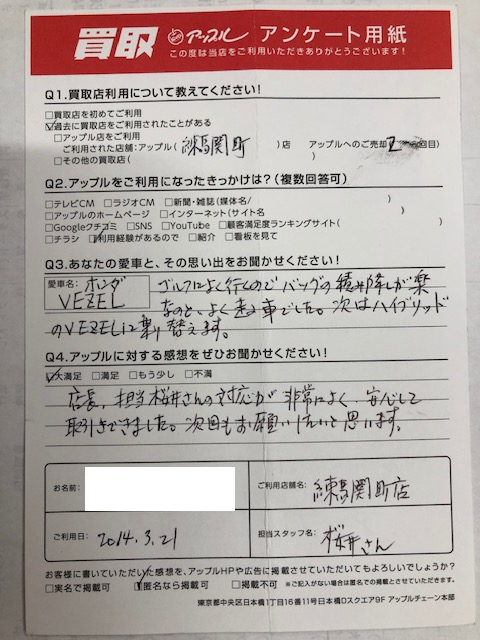 買取 アップル アンケート用紙
この度は当店をご利用いただきありがとうございます!
Q1.買取店利用について教えてください!
□買取店を初めてご利用
☑過去に買取店をご利用されたことがある
□アップル店をご利用
ご利用された店舗:アップル( 練馬関町 )店 アップルへのご売却 2 回目)
□その他の買取店( )
Q2.アップルをご利用になったきっかけは?(複数回答可)
□テレビCM □ラジオCM □新聞・雑誌(媒体名/ )
□アップルのホームページ □インターネット(サイト名 )
□Googleクチコミ □SNS □YouTube □顧客満足度ランキングサイト( )
□チラシ ☑利用経験があるので □紹介 □看板を見て
Q3.あなたの愛車と、その思い出をお聞かせください!
愛車名: ホンダ ゴルフによく行くのでバッグの積み降しが楽
VEZEL なのと、よく走る車でした。次はハイブリッド
のVEZELに乗り替えます。
Q4.アップルに対する感想をぜひお聞かせください!
☑大満足 □満足 □もう少し □不満
店長、担当桜井さんの対応が非常によく、安心して
取引きできました。次回もお願いしたいと思います。
お名前: ご利用店舗名: 練馬関町店
ご利用日: 2014.3.21 担当スタッフ名: 桜井さん
お客様に書いていただいた感想を、アップルHPや広告に掲載させていただいてもよろしいでしょうか?
□実名で掲載可 ☑匿名なら掲載可 □掲載不可 ※ご記入がない場合は匿名での掲載とさせていただきます。
東京都中央区日本橋1丁目16番11号日本橋Dスクエア9F アップルチェーン本部